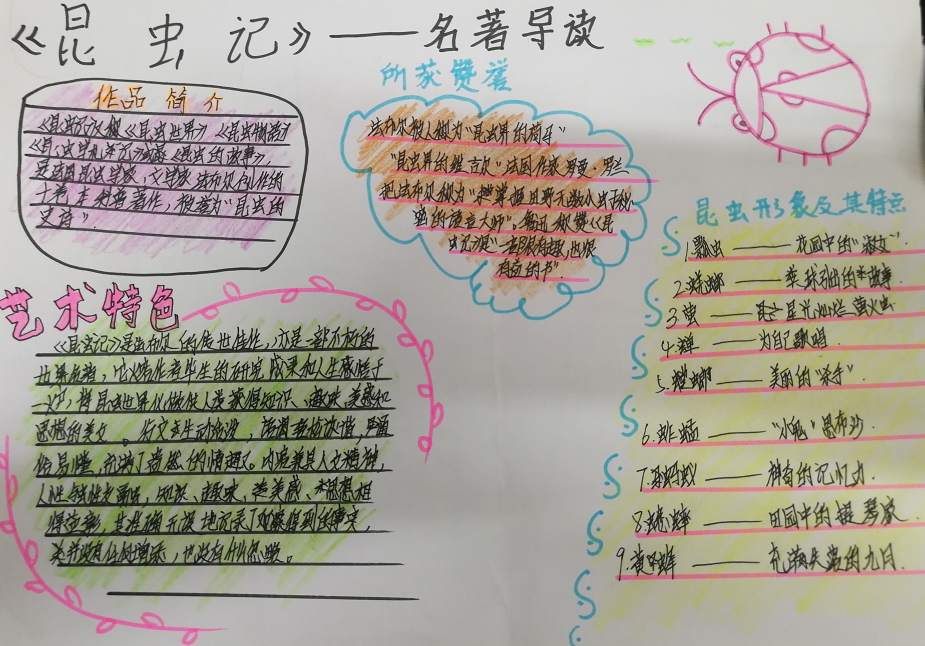 《昆虫记》——名著导读
作品简介
《昆虫记》又被《昆虫世界》《昆虫物语》
《昆虫学札记》或《昆虫的故事》,
是法国昆虫学家、文学家法布尔创作的
十卷本科普著作,被誉为"昆虫的
史诗"
所获赞誉
法布尔被人称为"昆虫界的荷马"
"昆虫界的维吉尔"法国作家罗曼·罗兰
把法布尔称为
的语言大师"。鲁迅称赞《昆
虫记》是"一部很有趣,也很
有益的书".
艺术特色
《昆虫记》是法布尔的传世佳作,亦是一部不朽的
世界名著,它熔作者毕生的研究成果和人生感悟于
一炉,将昆虫世界化做供人类获得知识、趣味、美感和
思想的美文。行文生动活泼,语调轻松诙谐,
俗易懂,充满了盎然的情趣。内容兼具人文精神,
人性与虫性交融,知识、趣味、美感、思想相
得益彰,其准确无误地记录了观察得到的事实,
既没有任何增添,也没有什么忽略。
昆虫形象及其特点
1.瓢虫——花园中的"淑女".
2.蜣螂——粪球引出的故事
3.萤——星光灿烂萤火虫
4.蝉——为自己歌唱
5.螳螂——美丽的"杀手"
6.
7.蚂蚁——神奇的记忆力.
8.蟋蟀——田园中的提琴家.
9.黄蜂——充满失望的九月.